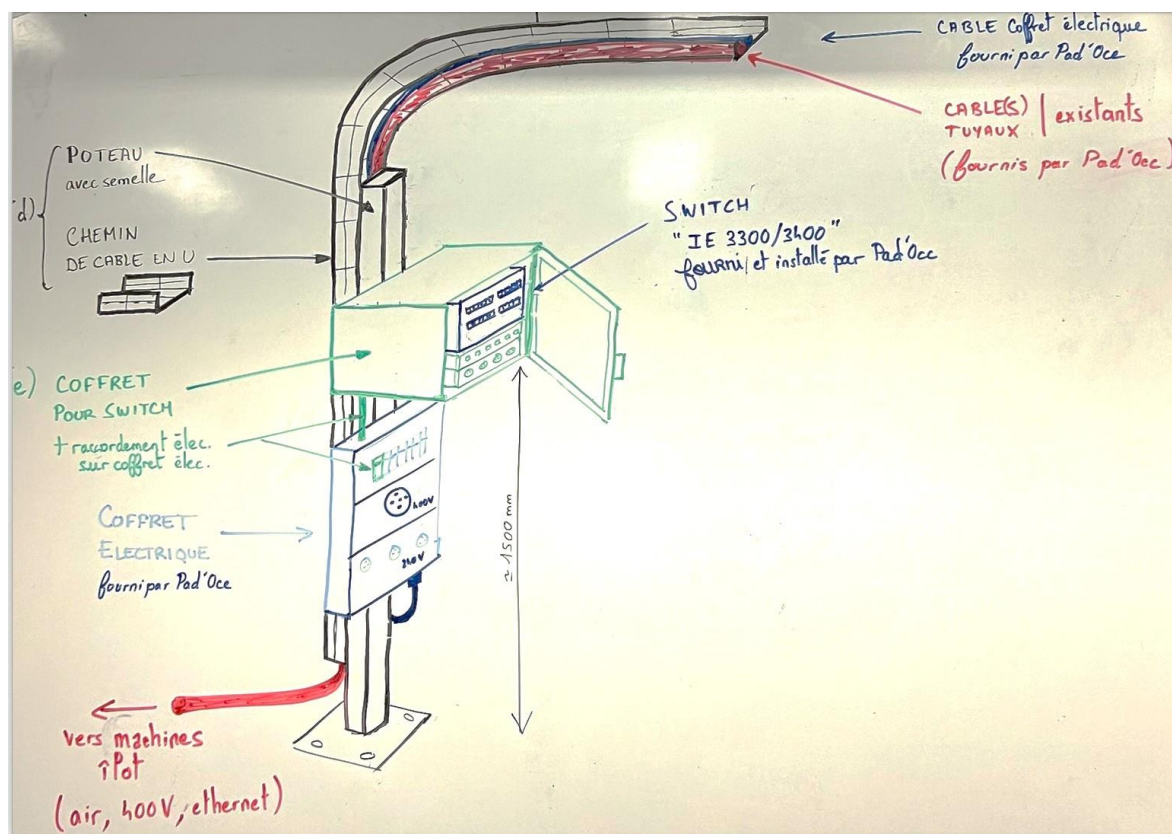 CABLE Coffret électrique
fourni par Pad'Oce
CABLE(S)
TUYAUX | existants
(fournis par Pad'Occ)
d) POTEAU
avec semelle
CHEMIN
DE CABLE EN U
SWITCH
"IE 3300/3400"
fourni et installé par Pad'Occ
e) COFFRET
POUR SWITCH
+ raccordement élec.
sur coffret élec.
400V
240V
COFFRET
ELECTRIQUE
fourni par Pad'Oce
≈ 1500 mm
vers machines
îPot
(air, 400V, ethernet)